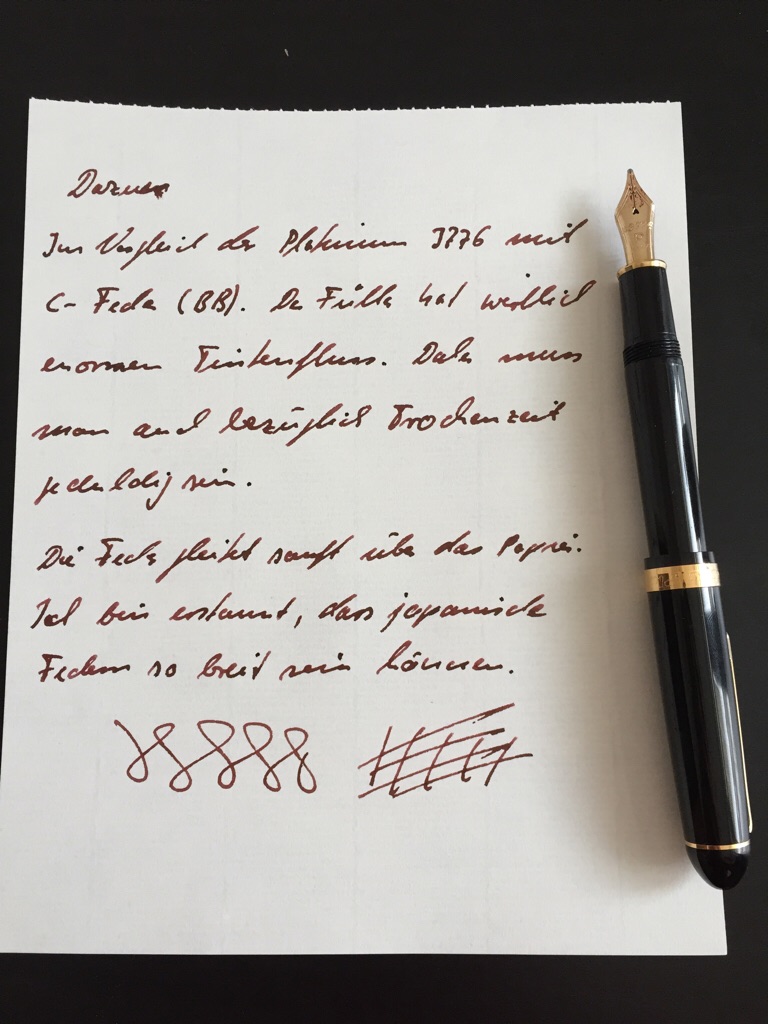 Im Vergleich der Platinum 3776 mit
C-Feder (BB). Der Füller hat wirklich
enormen Tintenfluss. Daher muss
man auch bezüglich Trockenzeit
geduldig sein.
Die Feder gleitet sanft über das Papier.
Ich bin erstaunt, dass japanische
Federn so breit sein können.